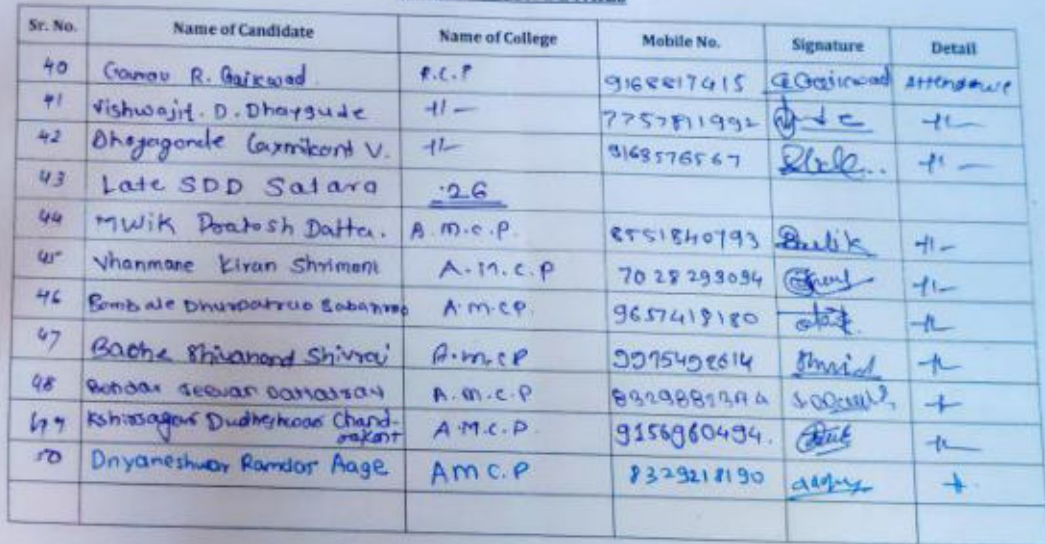 Sr. No. Name of Candidate Name of College Mobile No. Signature Detail
40 R. Gaikwad R.C.P 9168817415 GGaikwad Attendance
41 Vishwajit. D. Dhaygude -11- 7757811992 -11-
42 Dhaygonde Laxmikant V. -11- 9168576567 -11-
43 Late SDD Satara :26
44 Datta. A.M.C.P. 8551840793 -11-
45 Vhanmane Kiran Shrimant A.M.C.P 7028293094 -11-
46 Bombale A.M.CP. 9657418180 -11-
47 Bache Shivanand Shivraj A.M.CP -11-
48 A.M.C.P -11-
49 Kshirsagar Dudheshwar Chand-
rakant A.M.C.P. 9156960494. -11-
50 Dnyaneshwar Ramdas Aage AMC.P 8329218190